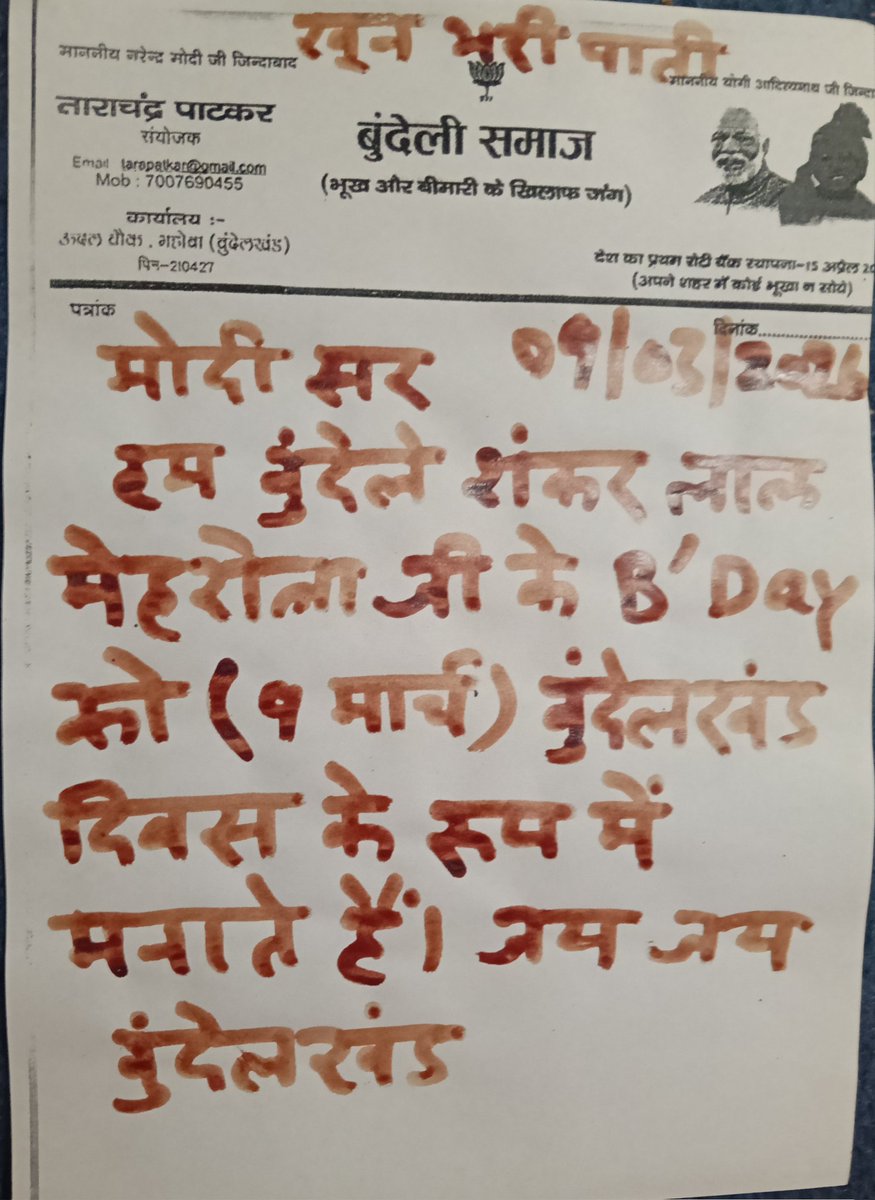 खून भरी पाती
माननीय नरेन्द्र मोदी जी जिन्दाबाद
माननीय योगी आदित्यनाथ जी जिन्दा
ताराचंद्र पाटकर
संयोजक
Email tarapatkar@gmail.com
Mob : 7007690455
कार्यालय :-
ऊदल चौक, महोवा (बुंदेलखंड)
पिन-210427
बुंदेली समाज
(भूख और बीमारी के खिलाफ जंग)
देश का प्रथम रोटी बैंक स्थापना-15 अप्रैल 20
(अपने शहर में कोई भूखा न सोये)
पत्रांक
दिनांक....................
मोदी सर 09/03/2026
हम बुंदेले शंकर लाल
मेहरौला जी के B'Day
को (9 मार्च) बुंदेलखंड
दिवस के रूप में
मनाते हैं। जय जय
बुंदेलखंड